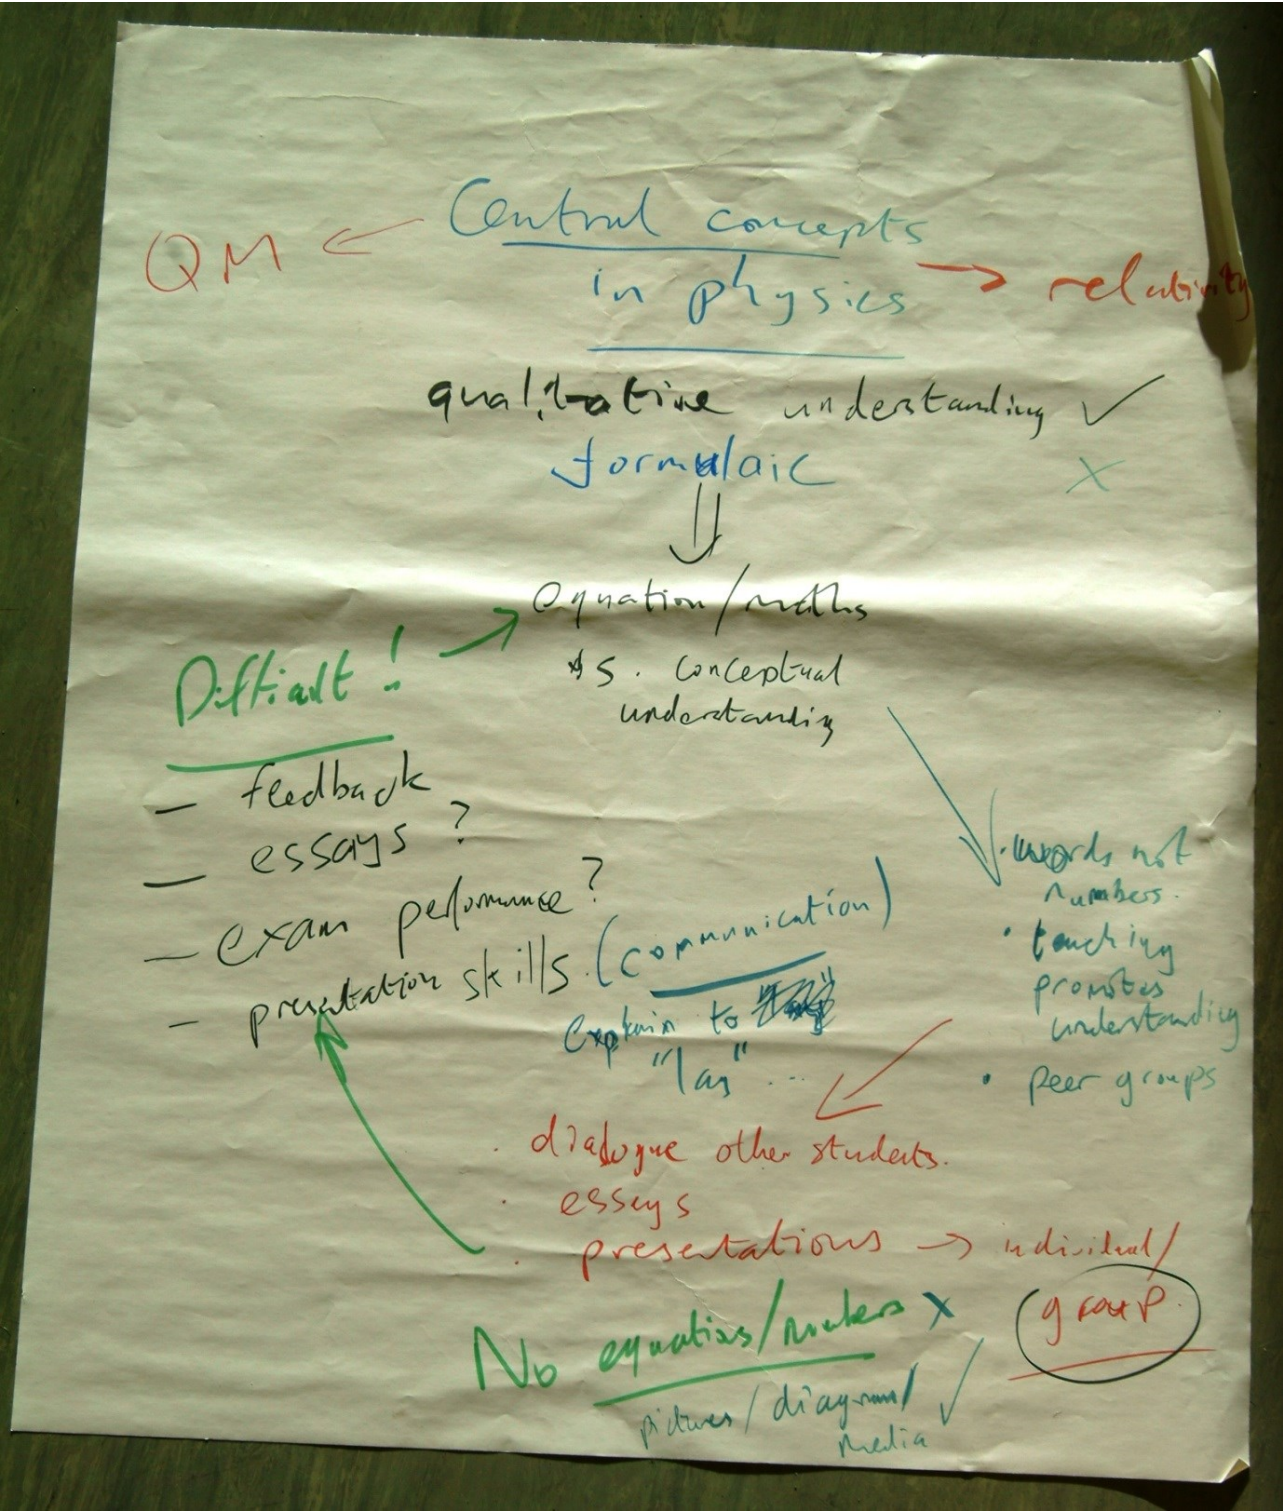 Central concepts
QM
in physics
relativity
qualitative understanding ✓
formulaic X
equation/maths
vs. conceptual
understanding
Difficult!
- feedback
- essays?
- exam performance?
- presentation skills (communication)
explain to
"lay" ...
· words not
numbers.
· teaching
promotes
understanding
· peer groups
· dialogue other students.
· essays
· presentations → individual/
group.
No equations/numbers X
pictures/diagrams/ ✓
media